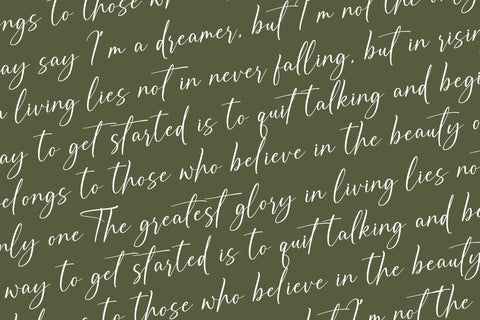 ngs to those who
ay say I'm a dreamer, but I'm not the only
living lies not in never falling, but in rising
ay to get started is to quit talking and begi
elongs to those who believe in the beauty o
nly one The greatest glory in living lies not
way to get started is to quit talking and be
s to those who believe in the beauty
but I'm not the